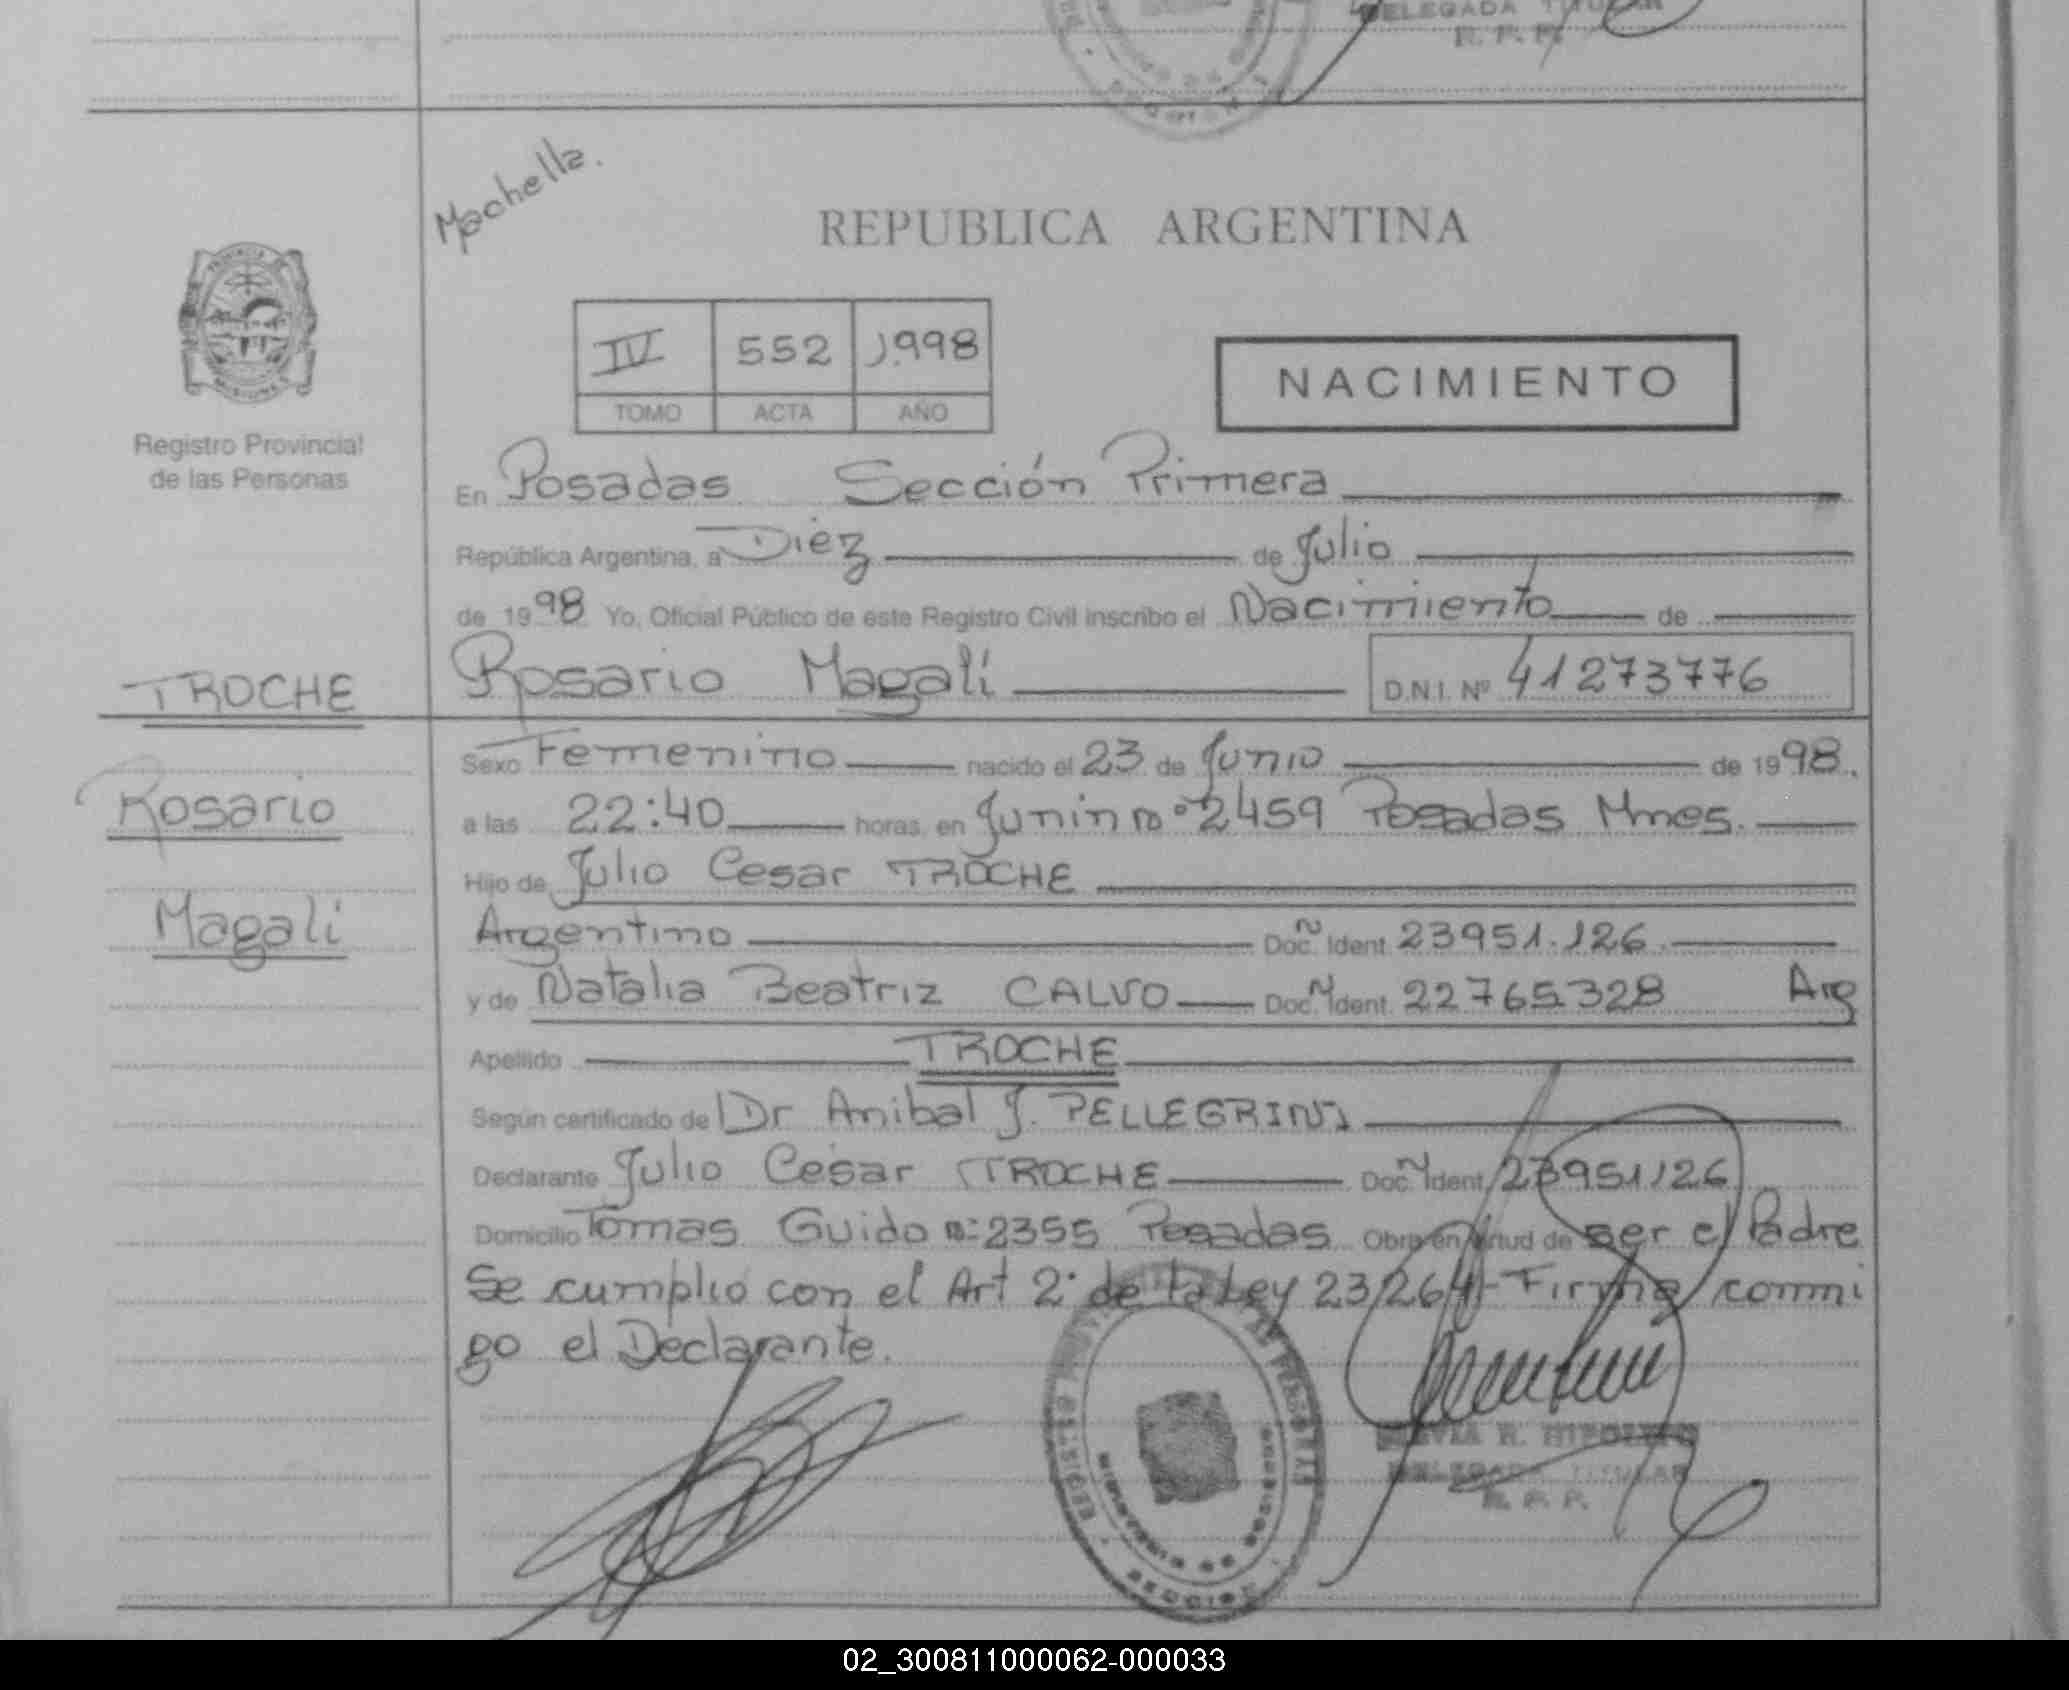 DELEGADA TITULAR
R. P. P.
Machella.
REPUBLICA ARGENTINA
IV 552 1.998
TOMO ACTA AÑO
NACIMIENTO
Registro Provincial
de las Personas
En Posadas Sección Primera
República Argentina, a Diez de Julio
de 1998 Yo, Oficial Público de este Registro Civil inscribo el Nacimiento de
TROCHE
Rosario Magalí
D.N.I. Nº 41273776
Sexo Femenino nacido el 23 de Junio de 1998.
Rosario
a las 22:40 horas, en Junin nº 2459 Posadas Mnes.
Hijo de Julio Cesar TROCHE
Magalí
Argentino Doc. N Ident. 23951.126
y de Natalia Beatriz CALVO Doc. N Ident. 22765328 Arg
Apellido TROCHE
Según certificado de Dr Anibal J. PELLEGRINI
Declarante Julio César TROCHE Doc. N Ident. 23951126
Domicilio Tomas Guido nº 2355 Posadas Obra en virtud de ser el Padre
Se cumplio con el Art 2º de la Ley 23264- Firma conmi
go el Declarante.
DELEGADA TITULAR
R. P. P.
02_300811000062-000033